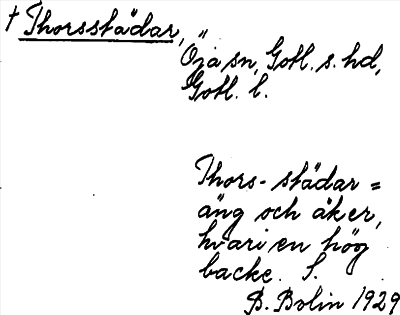 † Thorsstädar,
Öja sn, Gotl. s. hd,
Gotl. l.
Thors-städar =
äng och åker,
hvari en hög
backe. S.
B. Bolin 1929